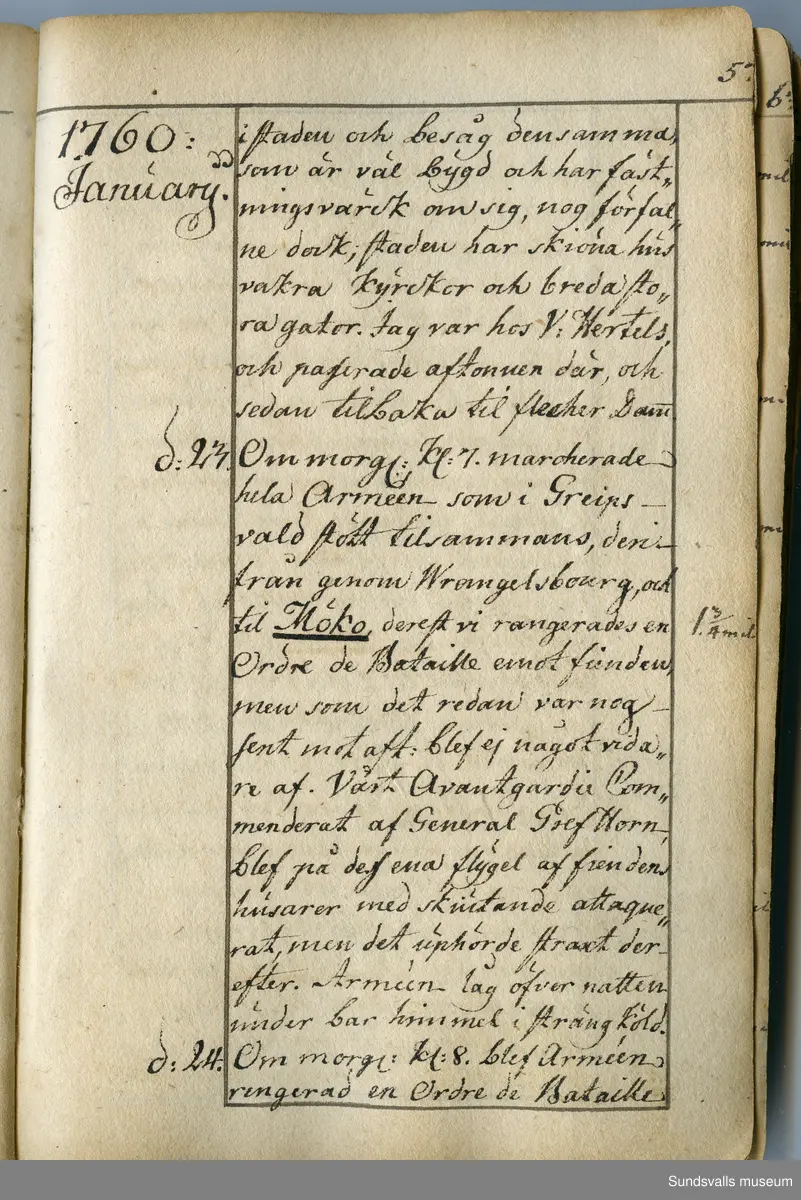 5:
1760:
January.
i staden och besåg densamma,
som är väl bÿgd och har fäst„
ningsvärck om sig, nog förfal„
ne dock; staden har skiöna hus
vakra kÿrckor och breda sto„
ra gator. Jag var hos V: Hertels,
och passerade aftonnen där, och
sedan tilbaka til flecher Dam
d: 23. Om morg: kl: 7. marcherade
hela Arméen som i Greips-
vald stött tilsammans, deri-
från genom Wrangelsbourg, och
til Möko, derest vi rangerades en
1 3/4 mil
Ordre de Bataille emot fienden,
men som det redan var nog
sent mot aft: blef ej något vida„
re af. Vårt Avantgardie Com„
menderat af General Gref Horn,
blef på dess ena flÿgel af fiendens
husarer med skiutande attaque„
rat, men det uphörde straxt der-
efter. Arméen låg öfver natten
under bar himmel i sträng köld.
d: 24. Om morg: kl: 8. blef Arméen
rengerad en Ordre de Bataille
6:
Sundsvalls museum